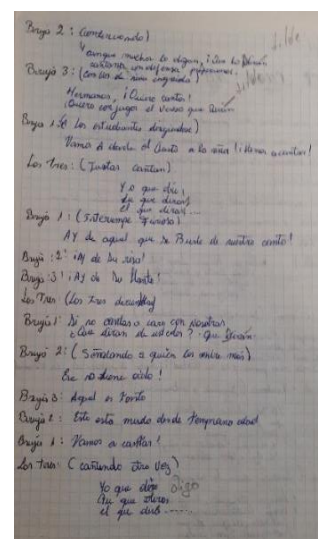 Bruja 2: (conservando)
Y aunque mucho lo digan, ¡Con lo
Bruja 3: (con voz de
Hermanas, ¡Quiero cantar!
¡Quiero conjugar el verso que
tilde
Bruja 1: (A los estudiantes dirigiendose)
Vamos a darle el Gusto a la niña! ¡Henos a cantar!
Los Tres: (Juntas cantan)
Yo que dire,
tu que diras
el que dira....
Bruja 1: (Interrumpe furiosa)
AY de aquel que se Burle de nuestro canto!
Bruja: 2: ¡Ay de su risa!
Bruja: 3: ¡Ay de su llanto!
Los Tres (Los tres
Bruja 1: Si no cantas a coro con nosotras
¿Que diran de ustedes? - Que
Bruja 2: (Señalando a quién los mire más)
Ese no tiene oido!
Bruja 3: Aquel es Tonto
Bruja 2: Este esta mudo desde temprana edad
Bruja 1: Vamos a cantar!
Los tres: (cantando otra vez)
Yo que digo Digo
Tu que dices
el que dice.......